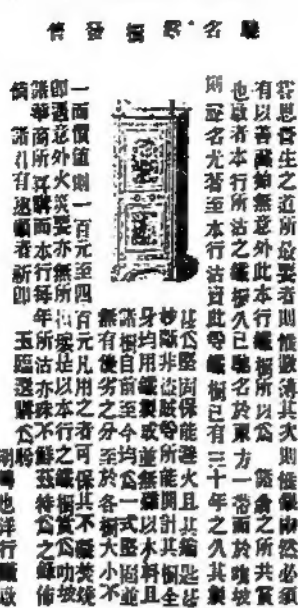 馳名鐵櫃發售
思營生之道所最要者則惟然必須
有以善藏始無意外此本行鐵櫃所以為 諸之所共賞
也啟者本行所沽之鐵櫃久已馳名於東方一帶而於叻坡
則冠名尤著至本行沽賣此等鐵櫃已有三十年之久其製
堅固保能避火且其鎖匙
妙斷非盜賊等所能開計其櫃全
身均用鐵製成並無雜以木料且
諸櫃自前至今均為一式堅固並
無有優劣之分至於各櫃大小不
一而價值則一百元至四百元凡用之者可保其不礙焚燒
即遇意外火災要亦無所損壞是以本行之鐵櫃實為叻坡
諸華商所購而本行每年所沽亦殊不鮮茲特為之佈
倘 諸君有購者祈即 玉臨選購為盼
也洋行謹啟